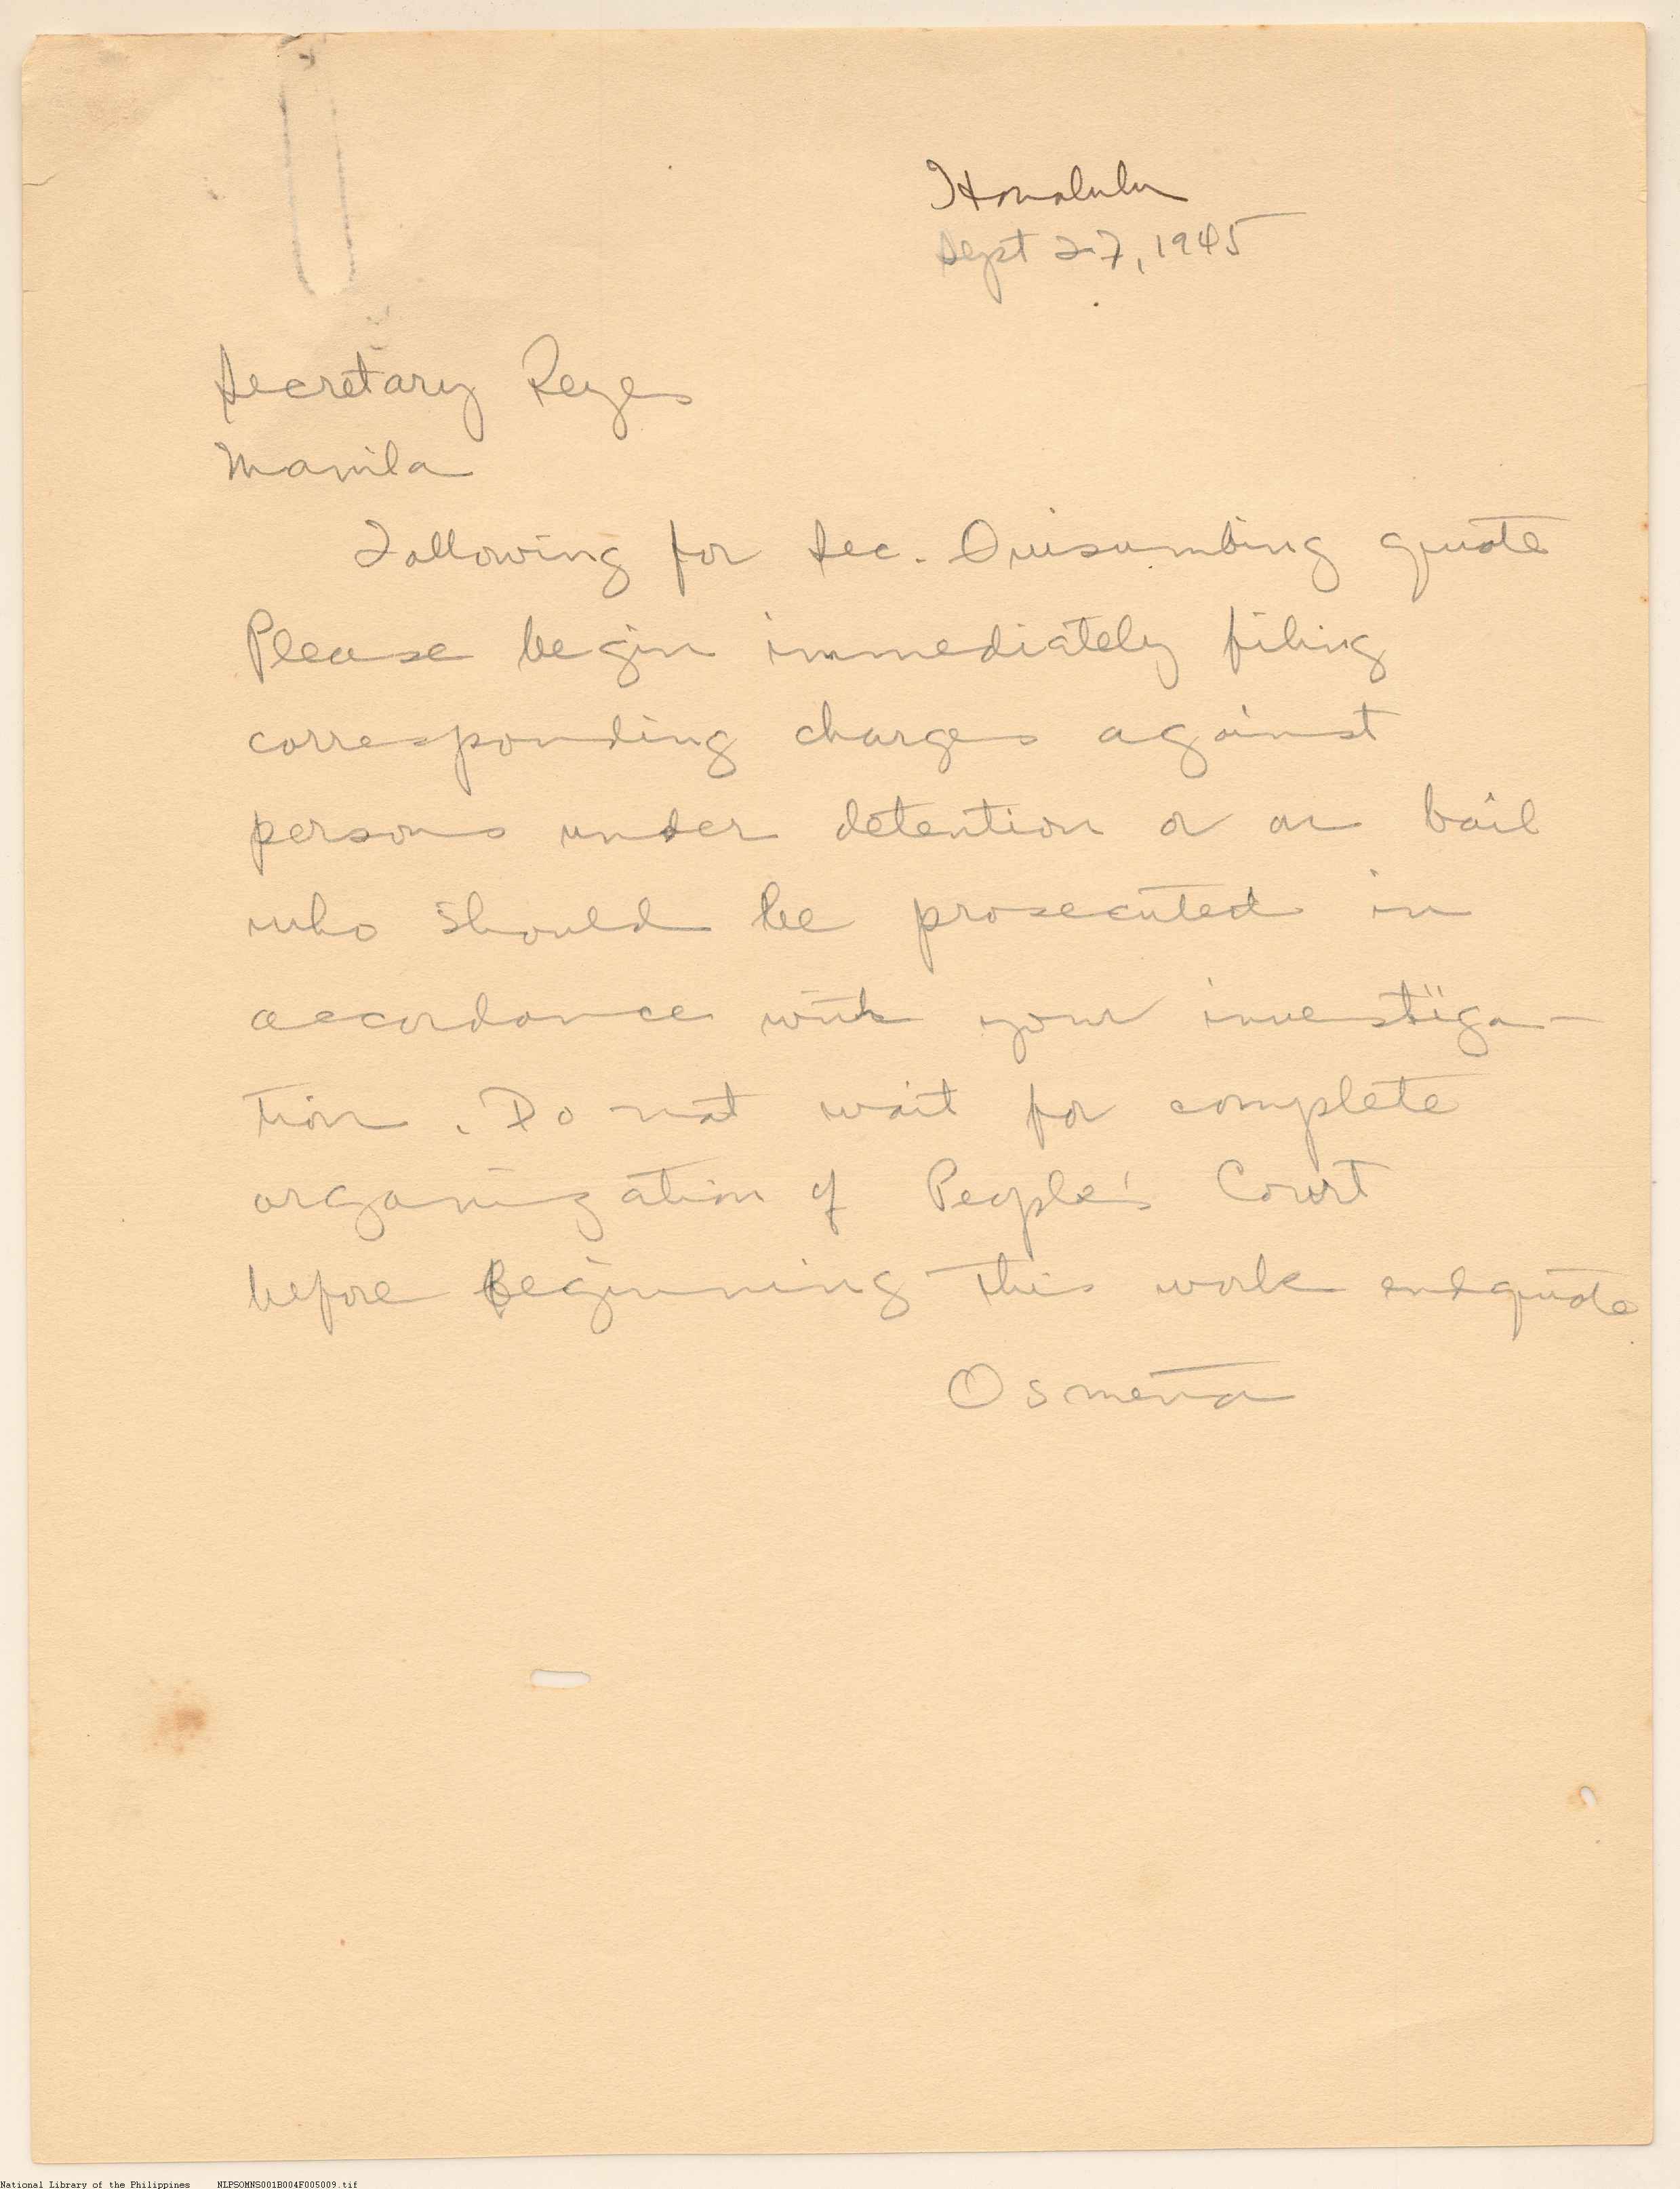 Honolulu
Sept 27, 1945
Secretary Reyes
Manila
Following for Sec. Quisumbing quote
Please begin immediately filing
corresponding charges against
persons under detention or on bail
who should be prosecuted in
accordance with your investiga-
tion. Do not wait for complete
organization of People's Court
before beginning this work endquote
Osmeña
National Library of the Philippines NLPSOMNS001B004F005009.tif